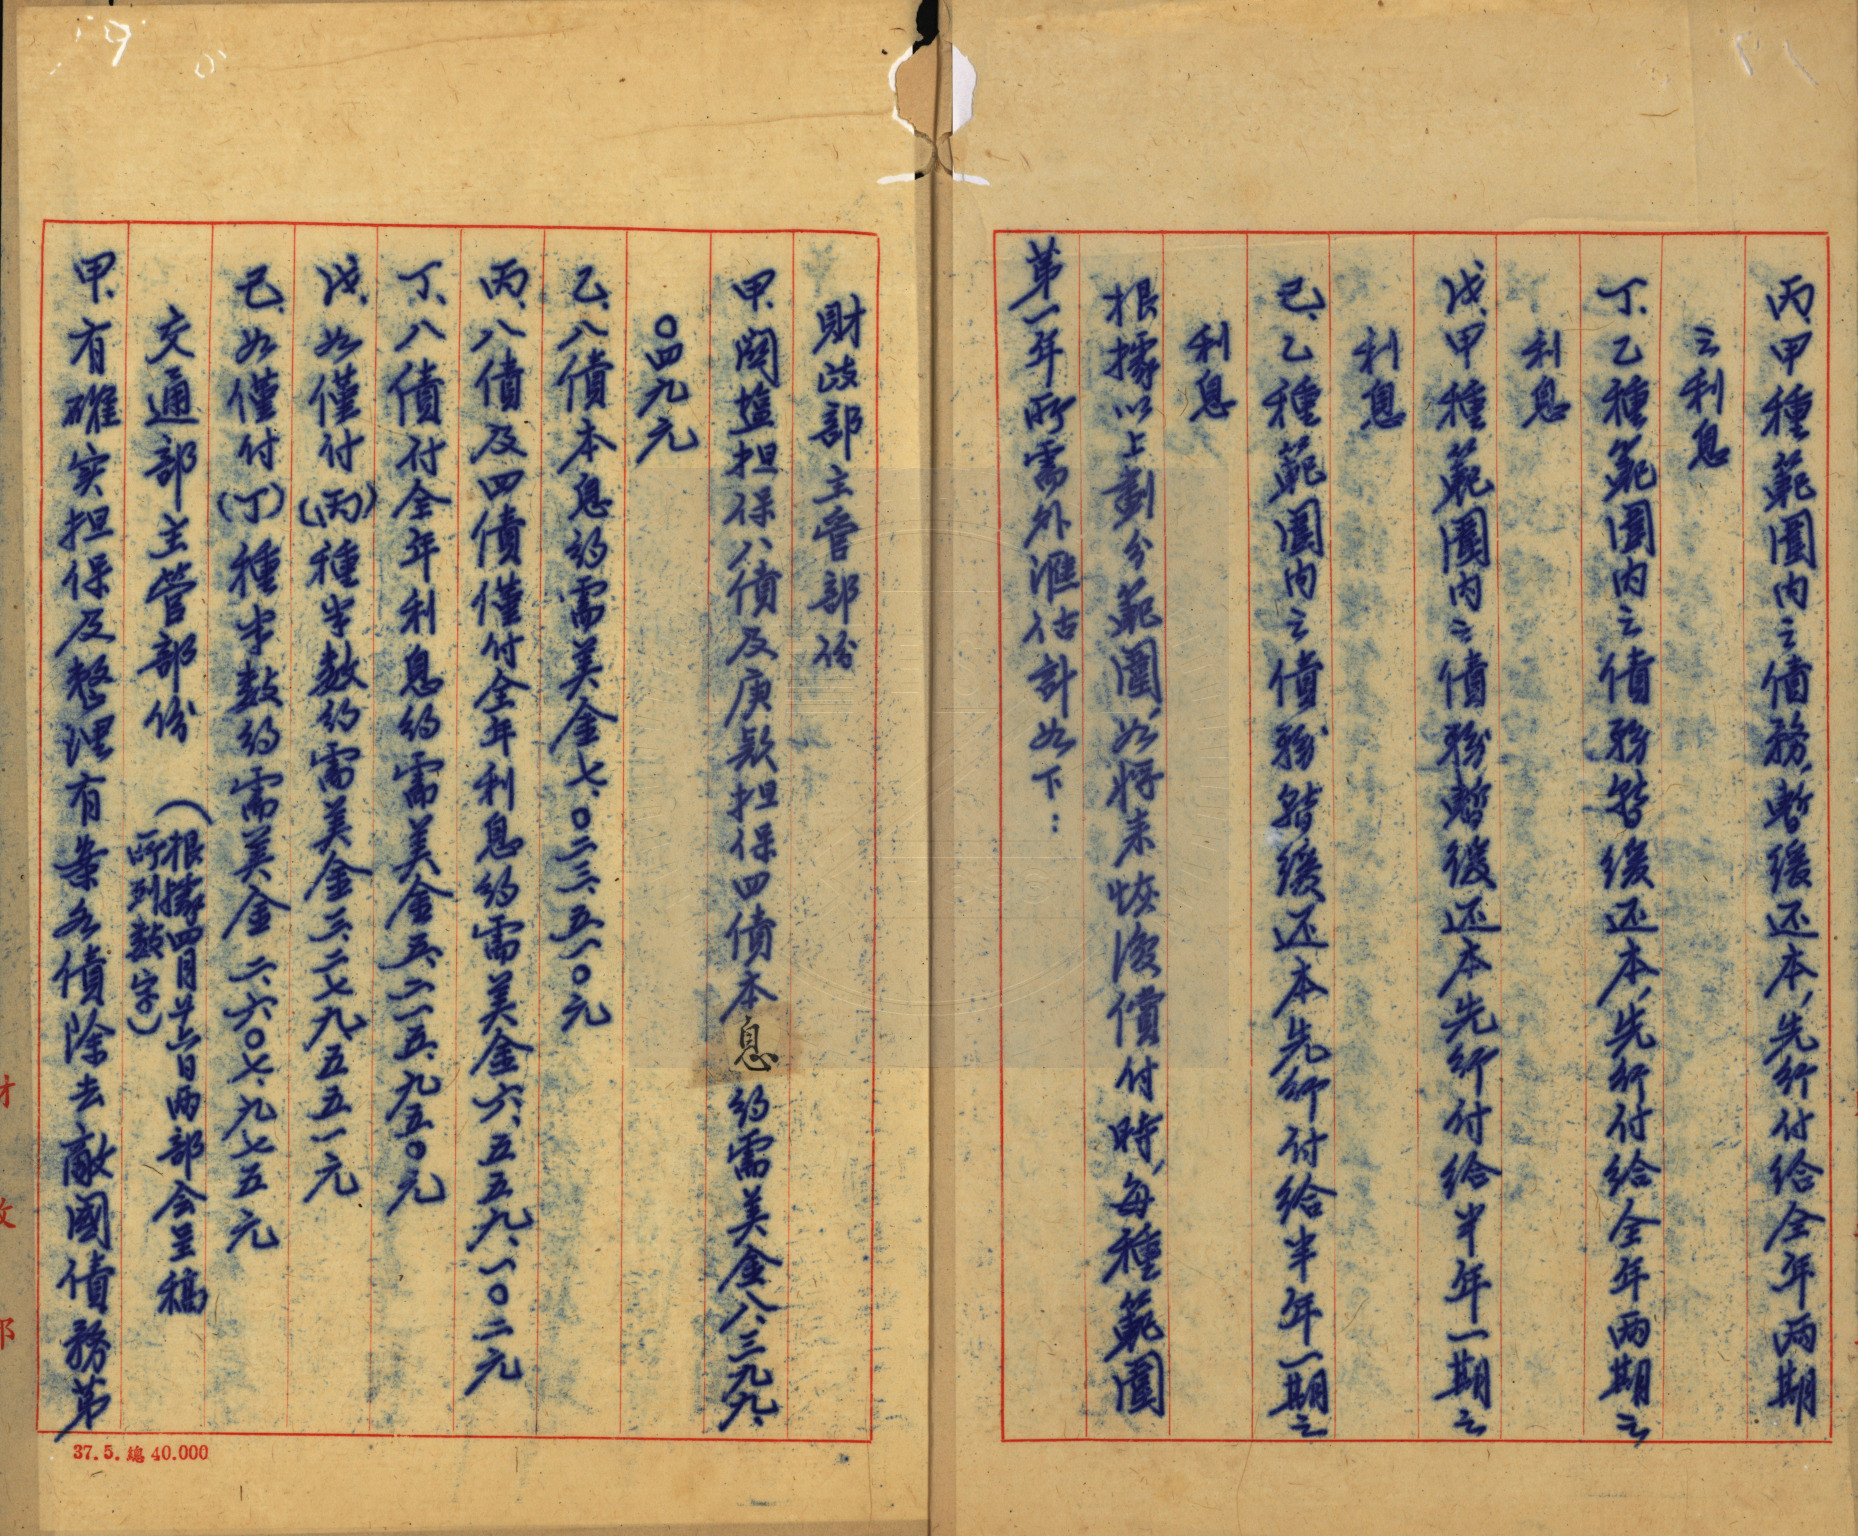 丙、甲種範圍內之債務，暫緩还本，先行付給全年両期
之利息
丁、乙種範圍內之債務暫緩还本，先行付給全年両期之
利息
戊、甲種範圍內之債務暫緩还本先行付給半年一期之
利息
己、乙種範圍內之債務暫緩还本先行付給半年一期之
利息
根據以上劃分範圍，如將來恢復償付時，每種範圍
第一年所需外滙估計如下：
財政部主管部份
甲、関塩担保八債及庚款担保四債本息約需美金八、三九九、
〇四九元
乙、八債本息約需美金七、〇二三、五一〇元
丙、八債及四債僅付全年利息約需美金六、五五九、一〇二元
丁、八債付全年利息約需美金五、二一五、九五〇元
戊、如僅付（丙）種半数約需美金三、二七九五五一元
己、如僅付（丁）種半数約需美金二、六〇七、九七五元
交通部主管部份（根據四月廿六日両部会呈稿
所列数字）
甲、有確实担保及整理有案各債除去敵國債務第
37.5.總40.000
財政部